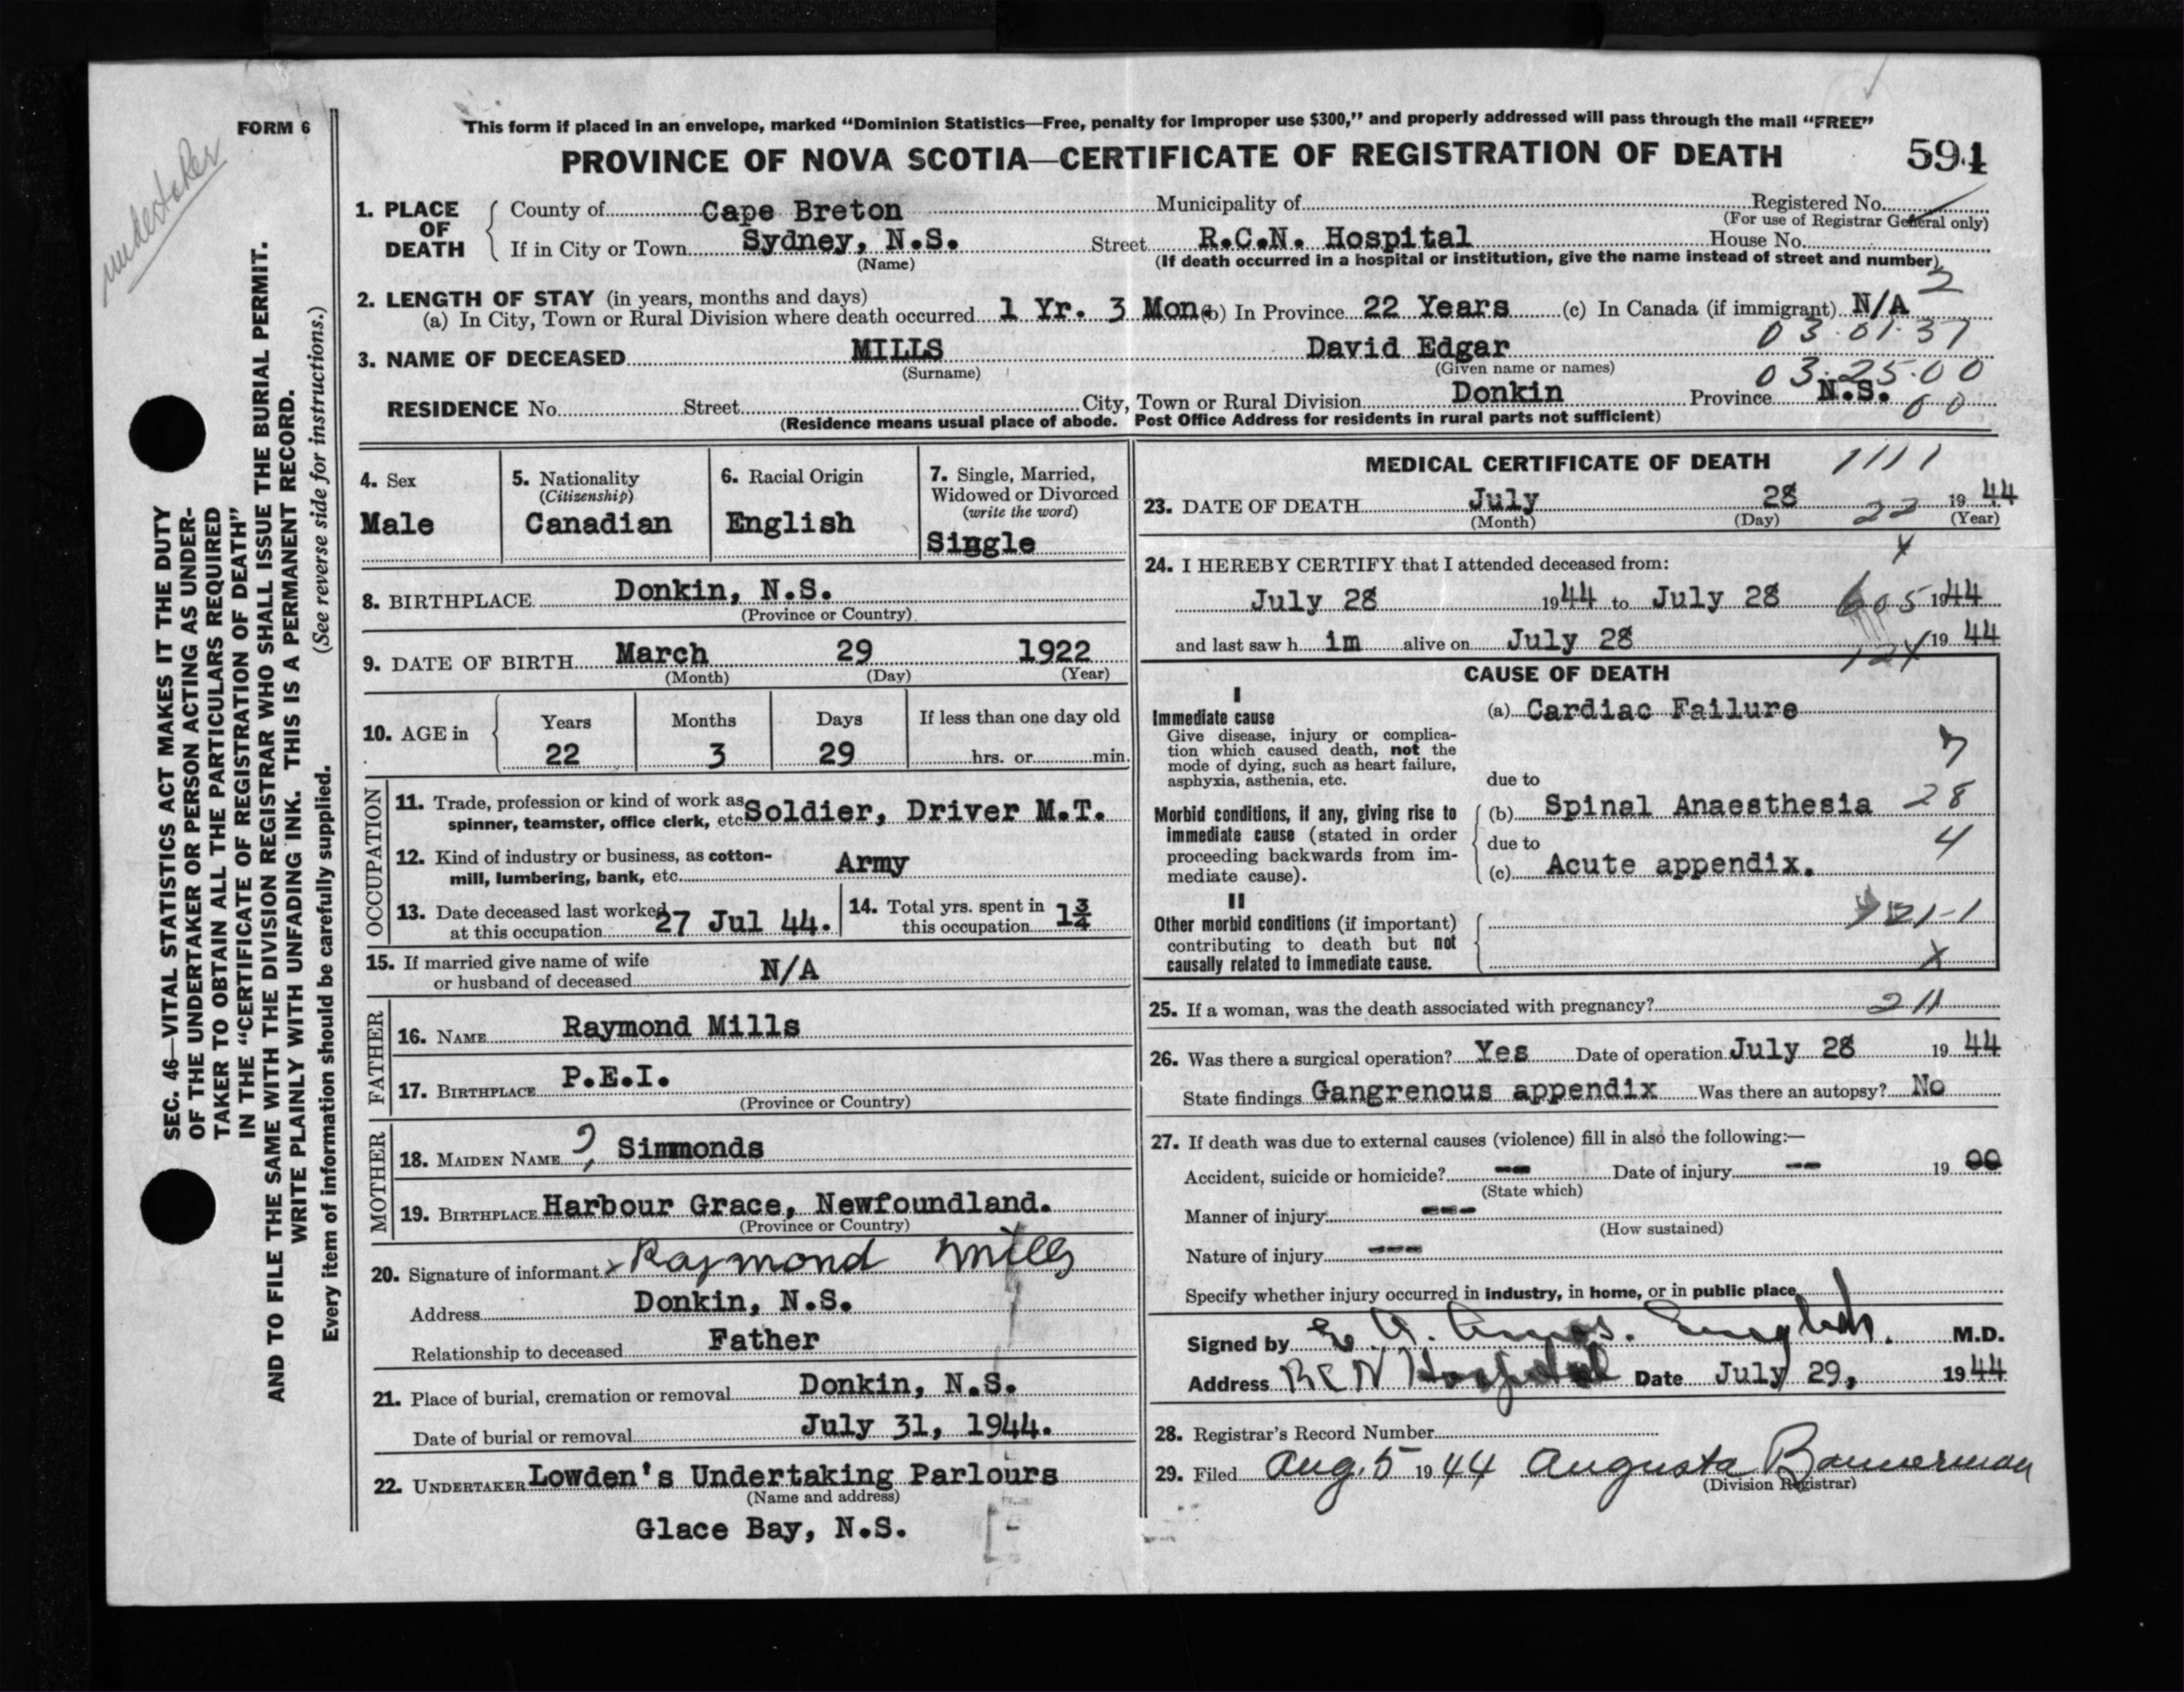 undertaker
FORM 6
SEC. 46—VITAL STATISTICS ACT MAKES IT THE DUTY
OF THE UNDERTAKER OR PERSON ACTING AS UNDER-
TAKER TO OBTAIN ALL THE PARTICULARS REQUIRED
IN THE "CERTIFICATE OF REGISTRATION OF DEATH"
AND TO FILE THE SAME WITH THE DIVISION REGISTRAR WHO SHALL ISSUE THE BURIAL PERMIT.
WRITE PLAINLY WITH UNFADING INK. THIS IS A PERMANENT RECORD.
Every item of information should be carefully supplied. (See reverse side for instructions.)
This form if placed in an envelope, marked "Dominion Statistics—Free, penalty for improper use $300," and properly addressed will pass through the mail "FREE"
PROVINCE OF NOVA SCOTIA—CERTIFICATE OF REGISTRATION OF DEATH 591
1. PLACE OF DEATH
County of Cape Breton Municipality of Registered No.
(For use of Registrar General only)
If in City or Town Sydney, N.S. Street R.C.N. Hospital House No.
(Name) (If death occurred in a hospital or institution, give the name instead of street and number)
2
2. LENGTH OF STAY (in years, months and days)
(a) In City, Town or Rural Division where death occurred 1 Yr. 3 Mon (b) In Province 22 Years (c) In Canada (if immigrant) N/A
03.01.37
3. NAME OF DECEASED MILLS David Edgar
(Surname) (Given name or names)
03.25.00
RESIDENCE No. Street City, Town or Rural Division Donkin Province N.S. 00
(Residence means usual place of abode. Post Office Address for residents in rural parts not sufficient)
4. Sex
Male
5. Nationality
(Citizenship)
Canadian
6. Racial Origin
English
7. Single, Married,
Widowed or Divorced
(write the word)
Single
8. BIRTHPLACE Donkin, N.S.
(Province or Country)
9. DATE OF BIRTH March 29 1922
(Month) (Day) (Year)
10. AGE in
Years Months Days If less than one day old
22 3 29 hrs. or min.
OCCUPATION
11. Trade, profession or kind of work as
spinner, teamster, office clerk, etc. Soldier, Driver M.T.
12. Kind of industry or business, as cotton-
mill, lumbering, bank, etc. Army
13. Date deceased last worked
at this occupation 27 Jul 44.
14. Total yrs. spent in
this occupation 1¾
15. If married give name of wife
or husband of deceased N/A
FATHER
16. NAME Raymond Mills
17. BIRTHPLACE P.E.I.
(Province or Country)
MOTHER
18. MAIDEN NAME ?, Simmonds
19. BIRTHPLACE Harbour Grace, Newfoundland.
(Province or Country)
20. Signature of informant x Raymond Mills
Address Donkin, N.S.
Relationship to deceased Father
21. Place of burial, cremation or removal Donkin, N.S.
Date of burial or removal July 31, 1944.
22. UNDERTAKER Lowden's Undertaking Parlours
(Name and address)
Glace Bay, N.S.
MEDICAL CERTIFICATE OF DEATH 1111
23. DATE OF DEATH July 28 22 1944
(Month) (Day) (Year)
x
24. I HEREBY CERTIFY that I attended deceased from:
July 28 1944 to July 28 605 1944
and last saw him alive on July 28 1944
CAUSE OF DEATH
I
Immediate cause
Give disease, injury or complica-
tion which caused death, not the
mode of dying, such as heart failure,
asphyxia, asthenia, etc.
(a) Cardiac Failure
7
due to
Morbid conditions, if any, giving rise to
immediate cause (stated in order
proceeding backwards from im-
mediate cause).
(b) Spinal Anaesthesia 28
due to 4
(c) Acute appendix.
II
Other morbid conditions (if important)
contributing to death but not
causally related to immediate cause.
x
25. If a woman, was the death associated with pregnancy? 211
26. Was there a surgical operation? Yes Date of operation July 28 1944
State findings Gangrenous appendix Was there an autopsy? No
27. If death was due to external causes (violence) fill in also the following:—
Accident, suicide or homicide? -- Date of injury -- 1900
(State which)
Manner of injury ---
(How sustained)
Nature of injury ---
Specify whether injury occurred in industry, in home, or in public place
Signed by English. M.D.
Address RCN Hospital Date July 29, 1944
28. Registrar's Record Number
29. Filed Aug. 5 1944 Augusta Bannerman
(Division Registrar)